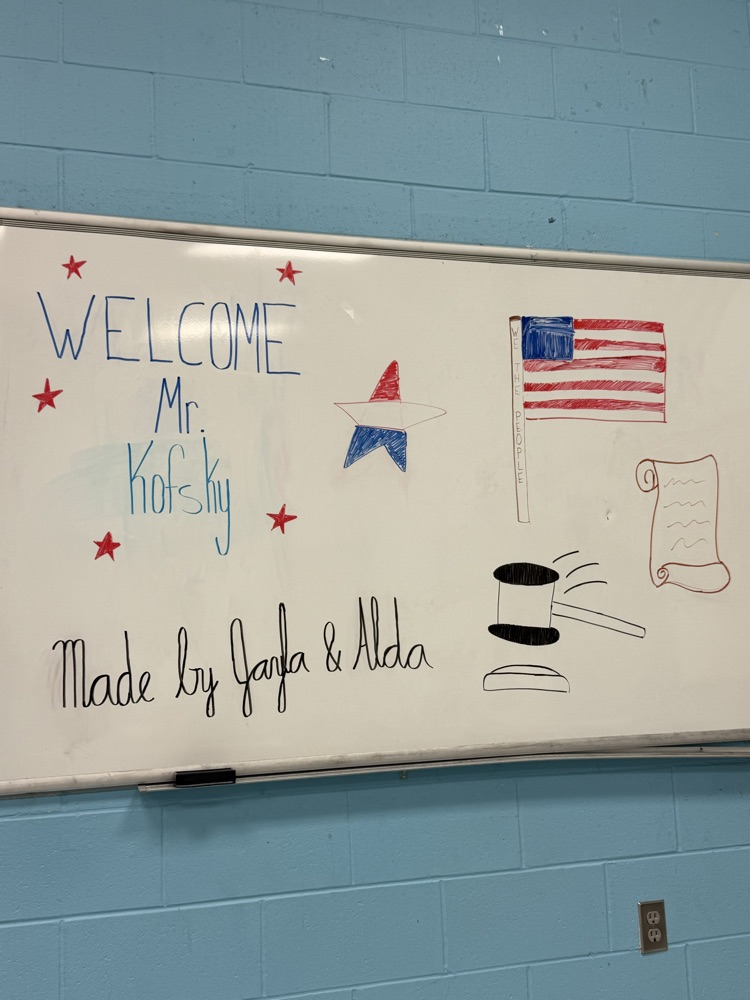 WELCOME
Mr.
Kofsky
WE THE PEOPLE
Made by Jayla & Alda